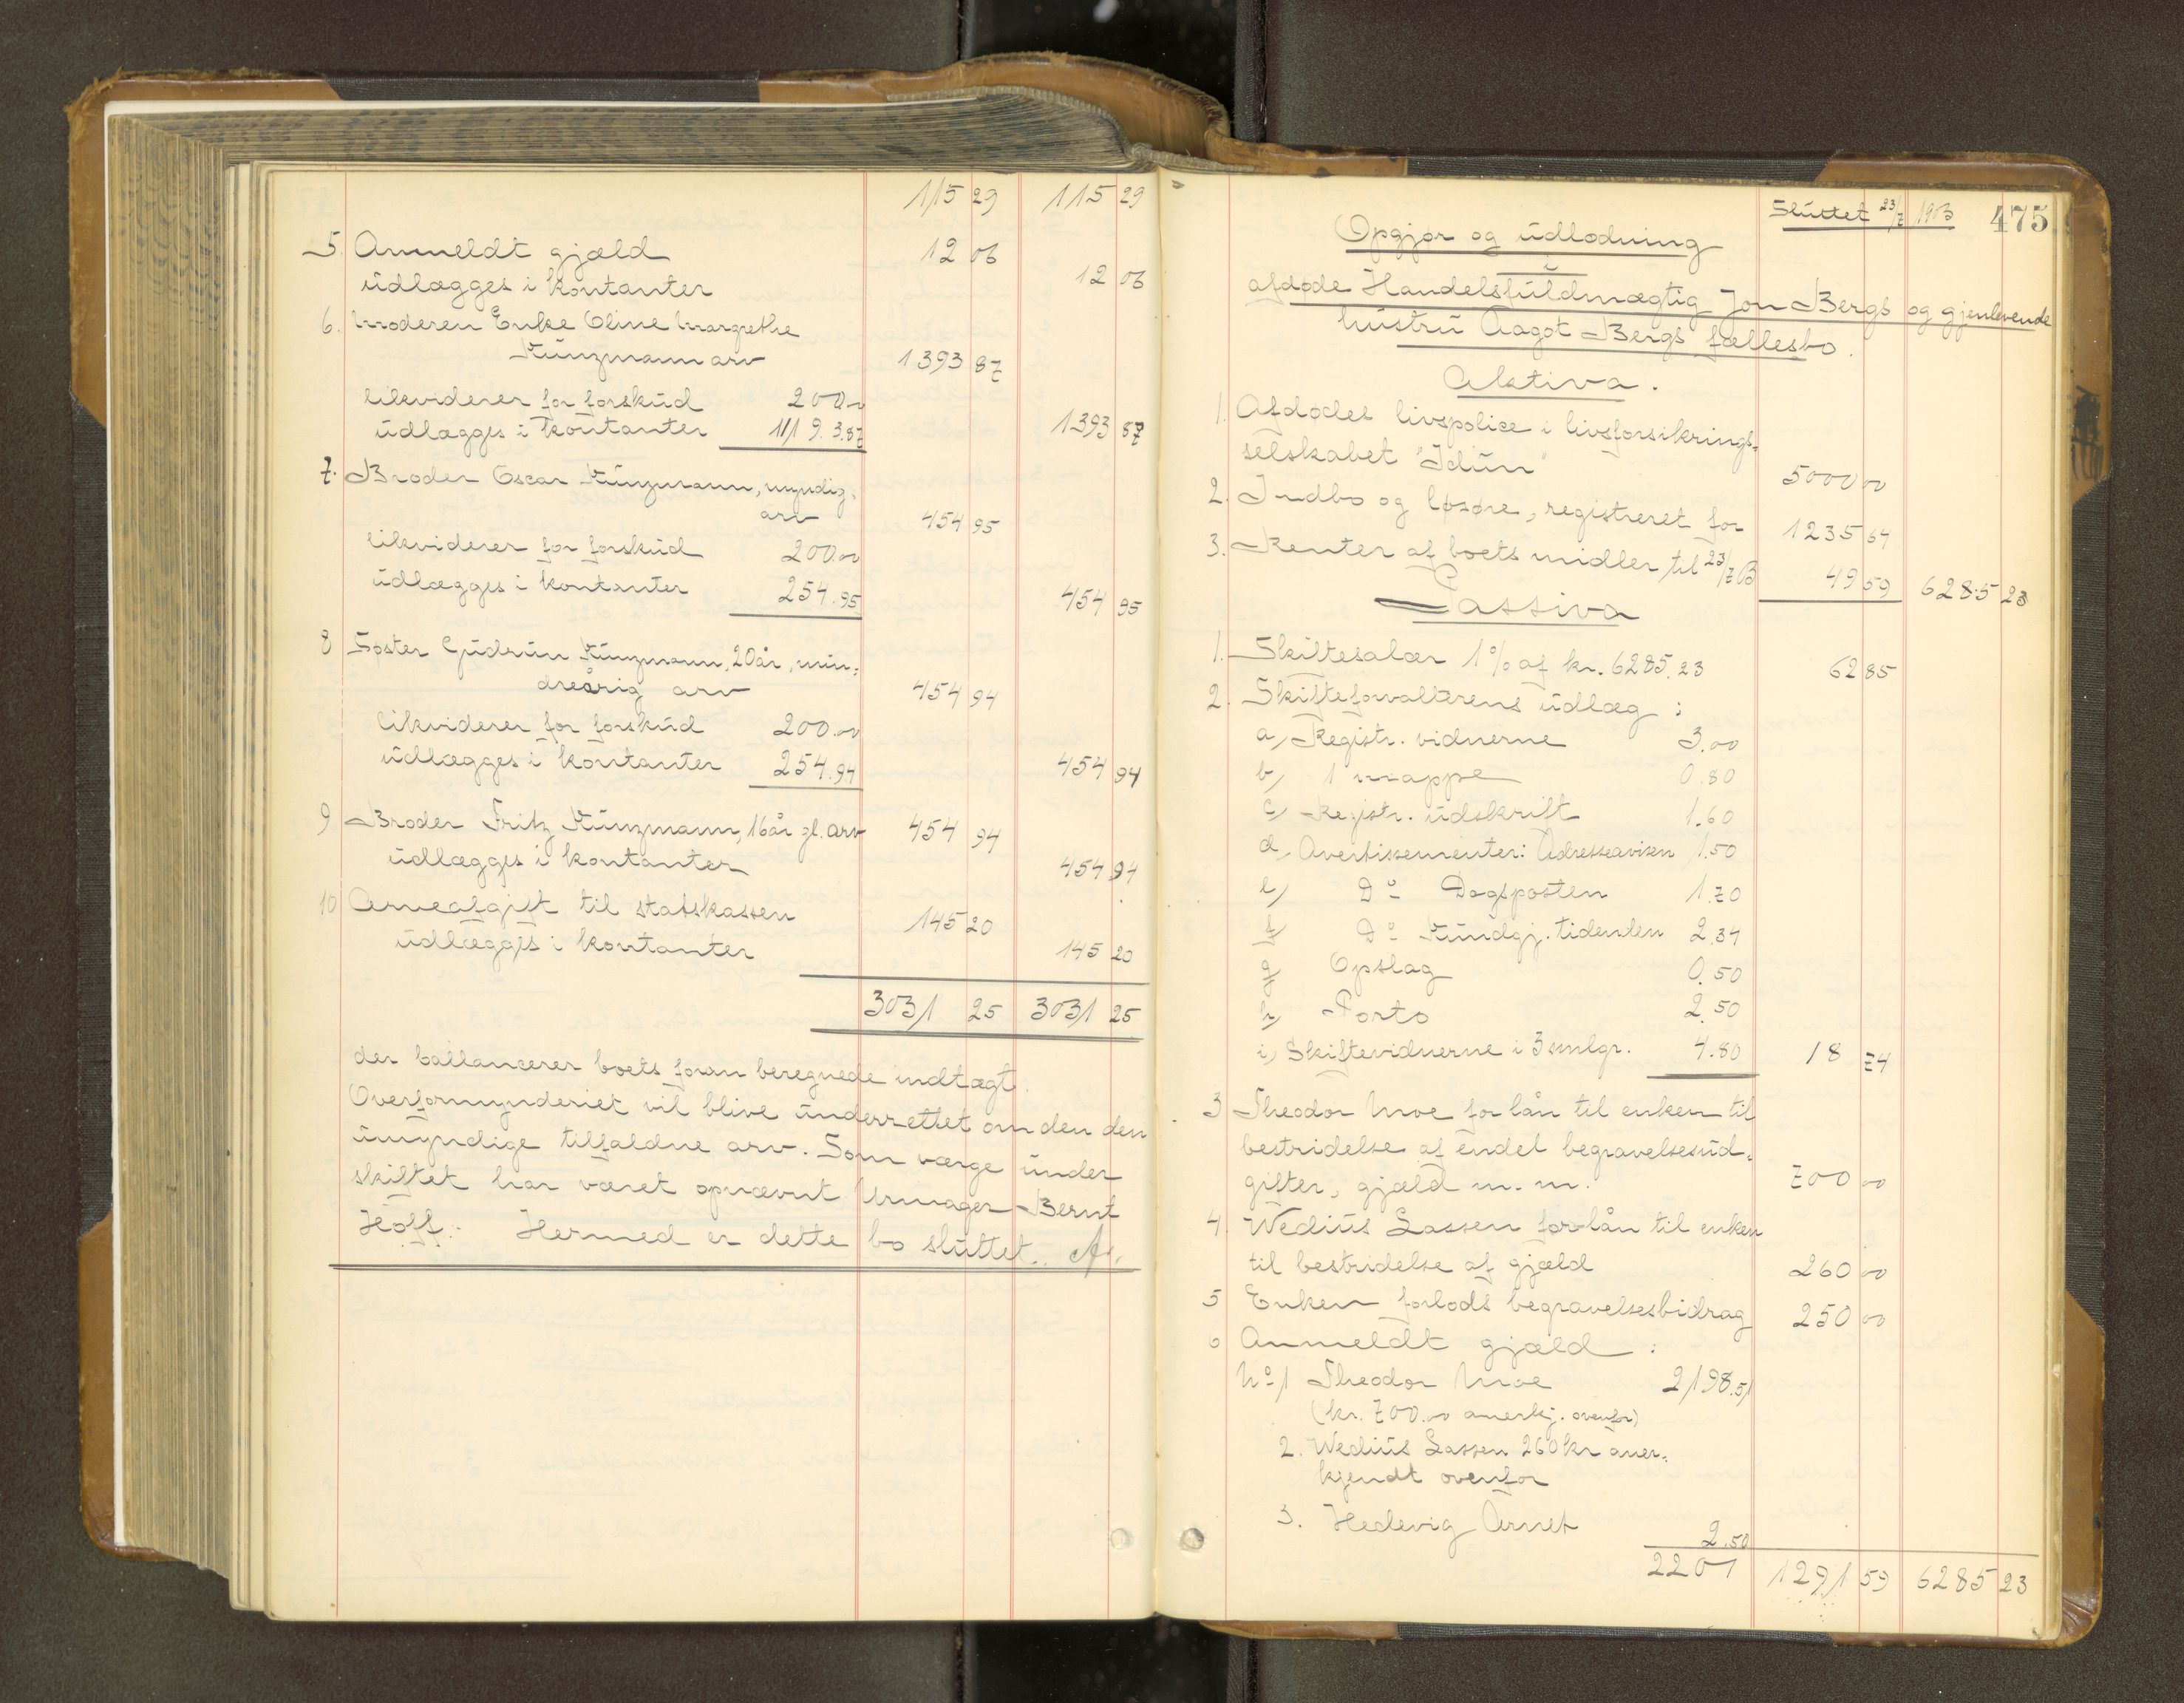 115 29 115 29
5. Anmeldt gjæld 12 06
udlægges i kontanter 12 06
6. Moderen Enke Oline Margrethe
Künzmann arv 1393 87
likviderer for forskud 200.00
udlægges i kontanter 1193.87 1393 87
7. Broder Oscar Künzmann, myndig,
arv 454 95
likviderer for forskud 200.00
udlægges i kontanter 254.95 454 95
8 Søster Gudrun Künzmann, 20 år, min-
dreårig arv 454 94
likviderer for forskud 200.00
udlægges i kontanter 254.94 454 94
9 Broder Fritz Künzmann, 16 år gl. arv 454 94
udlægges i kontanter 454 94
10 Arveafgift til statskassen 145 20
udlægges i kontanter 145 20
3031 25 3031 25
der ballancerer boets foran beregnede indtægt.
Overformynderiet vil blive underrettet om den den
umyndige tilfaldne arv. Som værge under
skiftet har været opnævnt Urmager Bernt
Hoff. Hermed er dette bo sluttet.
Sluttet 23/7 1903 475
Opgjør og udlodning
i
afdøde Handelsfuldmægtig Jon Bergs og gjenlevende
hustru Aagot Bergs fællesbo.
Aktiva.
1. Afdødes livspolice i livsforsikrings-
selskabet "Idun" 5000 00
2. Indbo og løsøre, registreret for 1235 64
3. Renter af boets midler til 23/7 03 49 59 6285 23
Passiva
1. Skiftesalær 1% af kr. 6285.23 62 85
2. Skifteforvalterens udlæg :
a, Registr. vidnerne 3.00
b, 1 mappe 0.80
c, Registr. udskrift 1.60
d, Avertissementer: Adresseavisen 1.50
e, Do Dagsposten 1.70
f, Do Kundgj. tidenden 2.34
g, Opslag 0.50
h, Porto 2.50
i, Skiftevidnerne i 3 smlgr. 4.80 18 74
3 Theodor Moe for lån til enken til
bestridelse af endel begravelsesud-
gifter, gjæld m. m. 700 00
4. Wedius Lassen for lån til enken
til bestridelse af gjæld 260 00
5 Enken forlods begravelsesbidrag 250 00
6 Anmeldt gjæld :
No 1 Theodor Moe 2198.51
(kr. 700.00 anerkj. ovenfor)
2. Wedius Lassen 260 kr aner-
kjendt ovenfor
3. Hedevig Arnet 2.50
2201 1291 59 6285 23